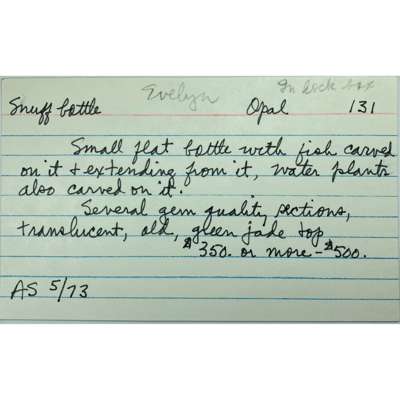 Evelyn In lock box
Snuff bottle Opal 131
Small flat bottle with fish carved
on it & extending from it, water plants
also carved on it.
Several gem quality sections,
translucent, old, green jade top
$350. or more - $500.
AS 5/73